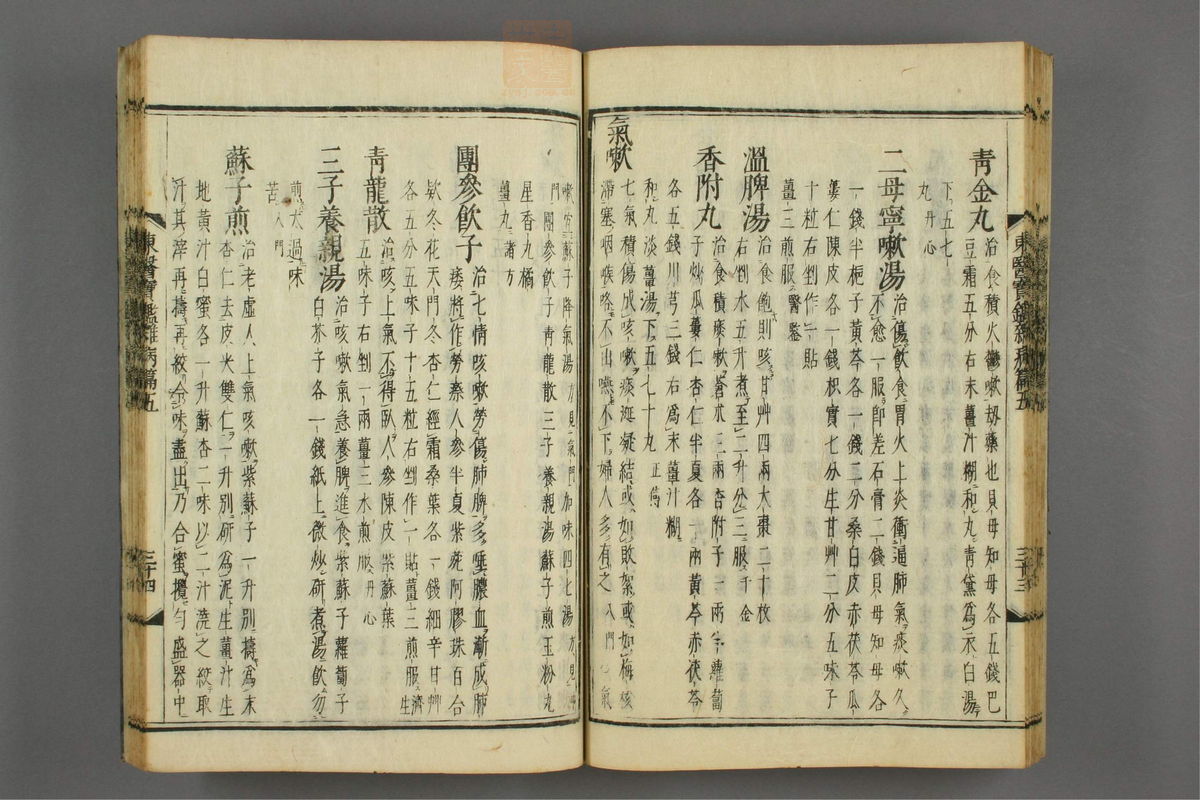 青金丸 治食積火鬱嗽劫藥也貝母知母各五錢巴
豆霜五分右末薑汁糊和丸靑黛爲衣白湯
下五七丸丹心
二母寧嗽湯 治傷飮食胃火上炎衝逼肺氣痰嗽久
不愈一服卽差石膏二錢貝母知母各
一錢半梔子黃芩各一錢二分桑白皮赤茯苓瓜
蔞仁陳皮各一錢枳實七分生甘艸二分五味子
十粒右剉作一貼
薑三煎服醫鑒
溫脾湯 治食飽則咳甘艸四兩大棗二十枚
右剉水五升煮至二升分三服千金
香附丸 治食積痰嗽蒼朮三兩香附子一兩半蘿蔔
子炒瓜蔞仁杏仁半夏各一兩黃芩赤茯苓
各五錢川芎三錢右爲末薑汁糊
和丸淡薑湯下五七十丸正傳
氣嗽 七氣積傷成咳嗽痰涎凝結或如敗絮或如梅核
滯塞咽喉咯不出嚥不下婦人多有之入門 氣
東醫寶鑑雜病篇五 三十三
嗽宜蘇子降氣湯方見氣門加味四七湯方見
門團參飮子靑龍散三子養親湯蘇子煎玉粉丸
星香丸橘
薑丸諸方
團參飮子 治七情咳嗽勞傷肺脾多唾膿血漸成肺
痿將作勞瘵人參半夏紫菀阿膠珠百合
款冬花天門冬杏仁經霜桑葉各一錢細辛甘艸
各五分五味子十五粒右剉作一貼薑三煎服濟生
靑龍散 治咳上氣不得臥人參陳皮紫蘇葉
五味子右剉一兩薑三水煎服丹心
三子養親湯 治咳嗽氣急養脾進食紫蘇子蘿蔔子
白芥子各一錢紙上微炒研煮湯飮勿
煎太過味
苦入門
蘇子煎 治老虛人上氣咳嗽紫蘇子一升別擣爲末
杏仁去皮尖雙仁一升別硏爲泥生薑汁生
地黃汁白蜜各一升蘇杏二味以二汁澆之絞取
汁其滓再擣再絞令味盡出乃合蜜攪勻盛器中
東醫寶鑑雜病篇五 三十四